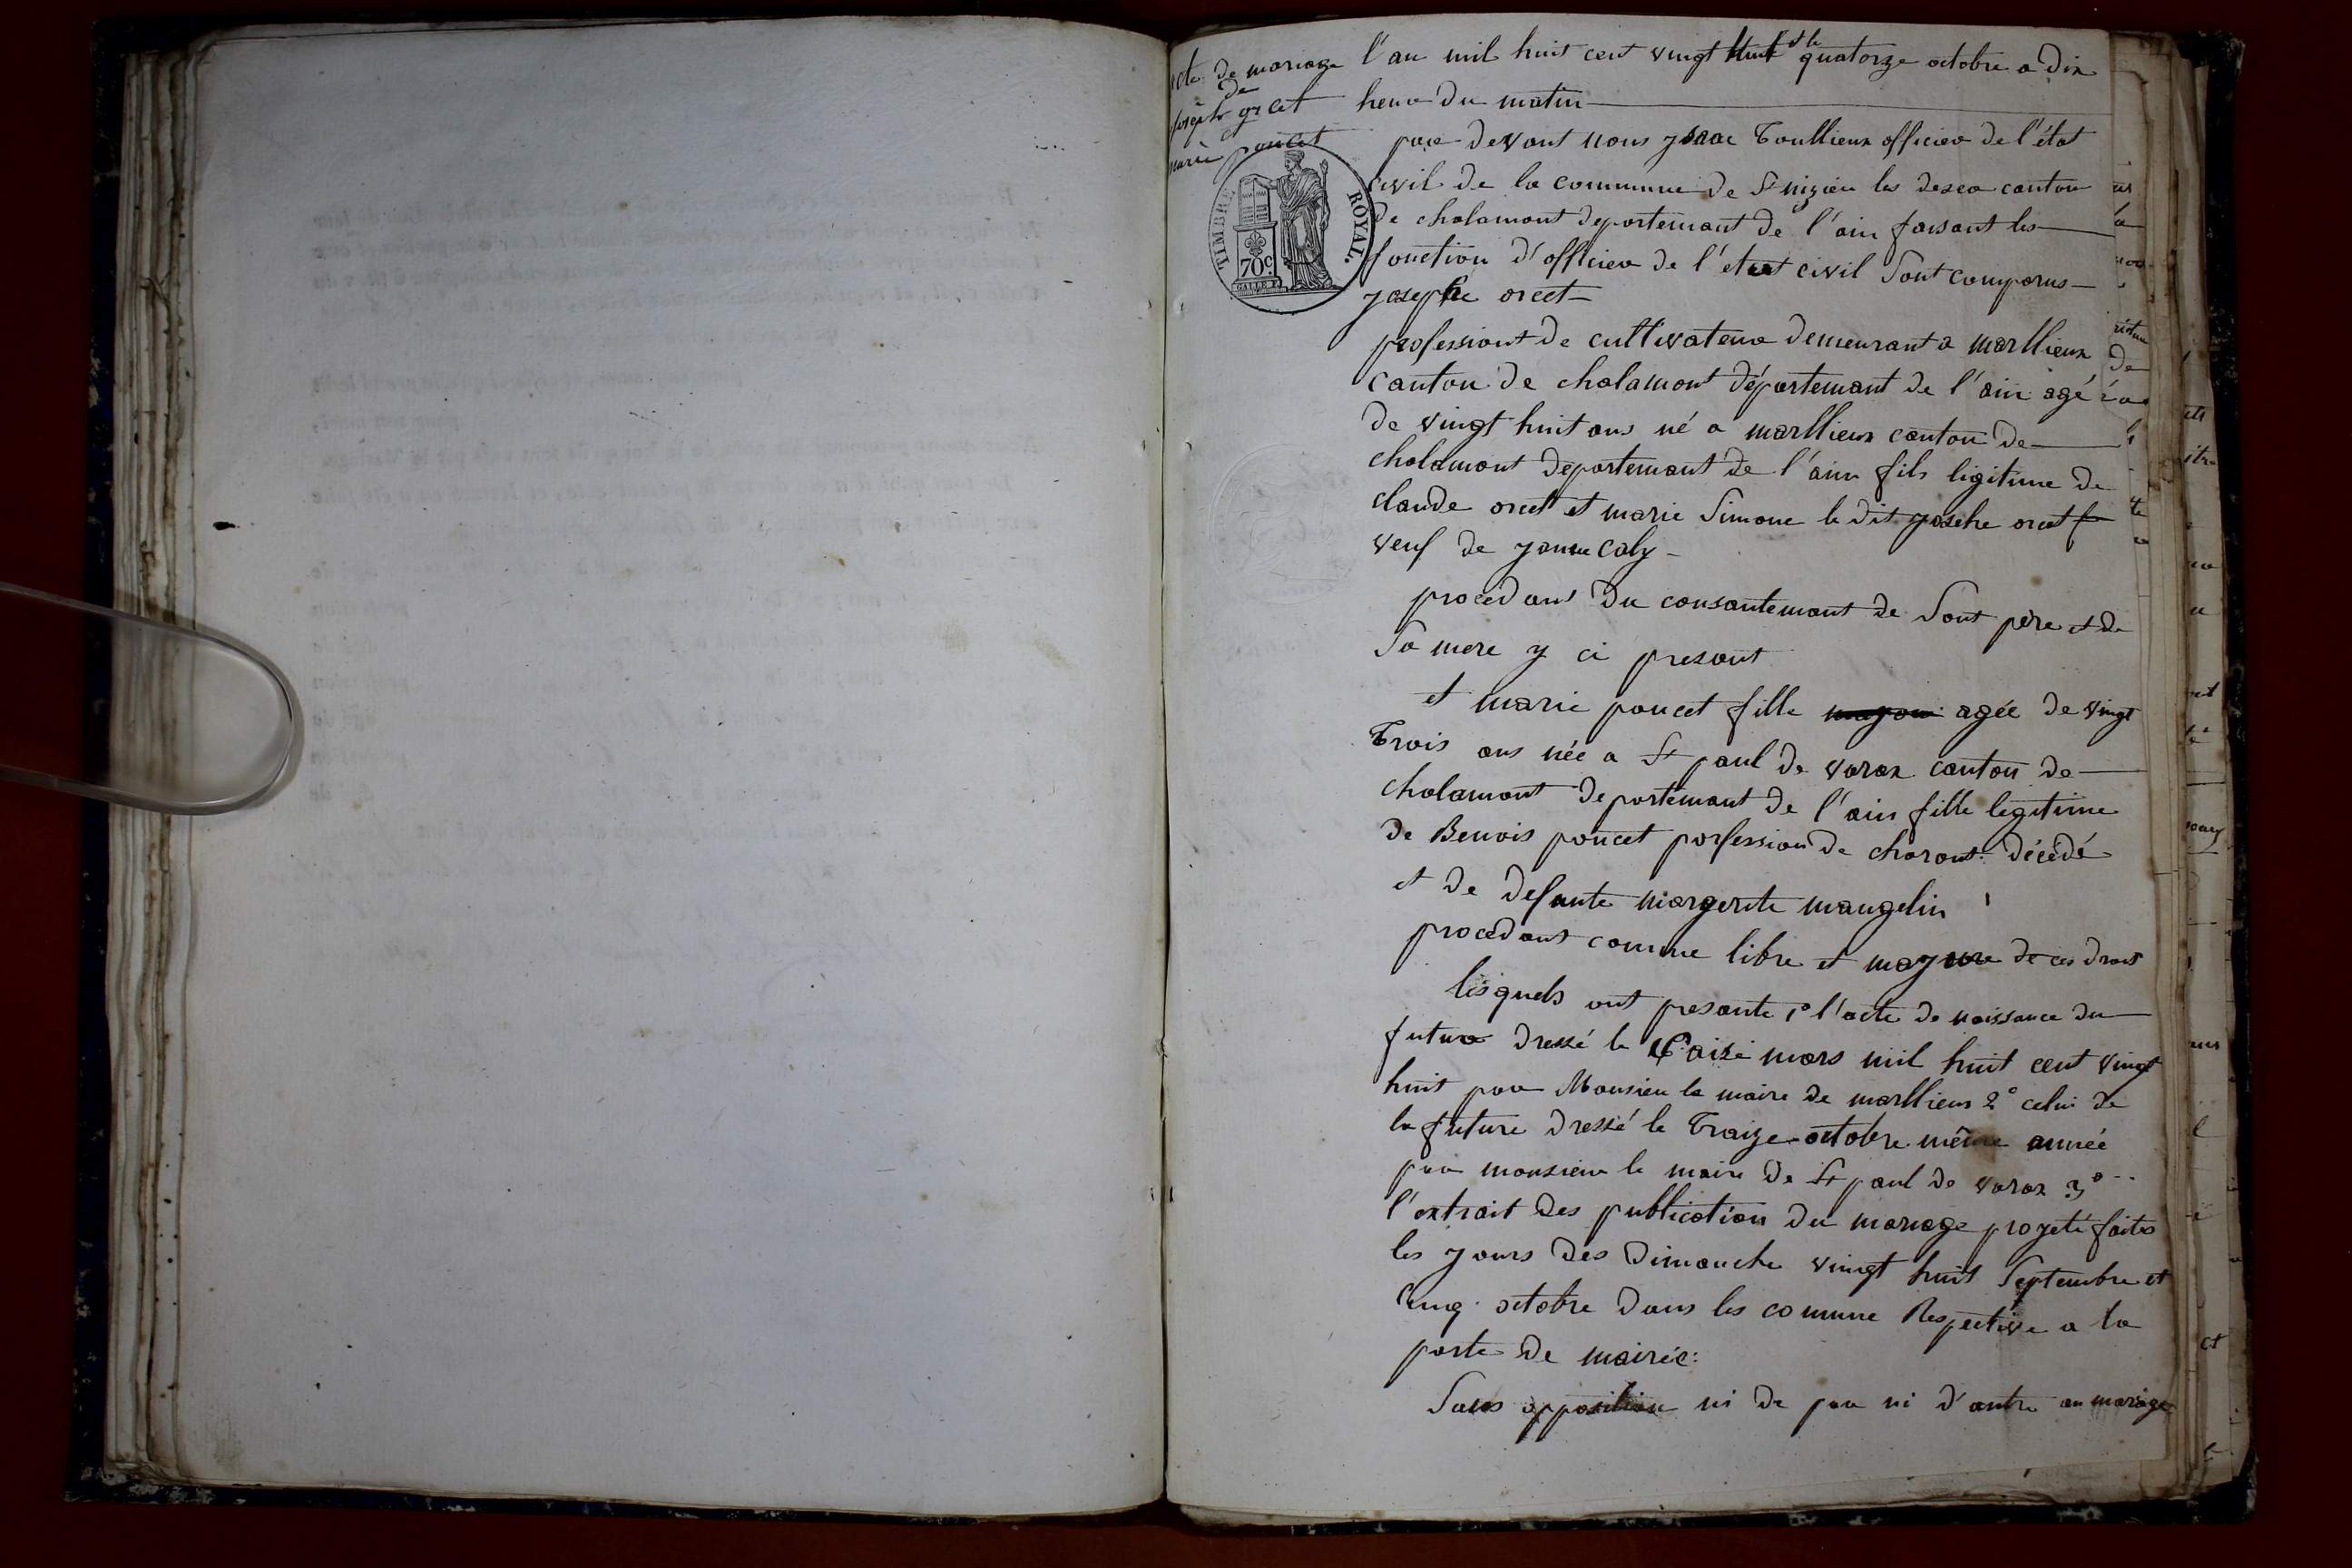 acte de mariage
de
joseph orcet
et
marie poncet
TIMBRE ROYAL.
70c.
l'an mil huit cent vingt huit et le quatorze octobre a dix
heure du matin
par devant nous ysaac Toullieux officier de l'état
civil de la commune de St nizier les desea canton
de chalamont departemant de l'ain faisant les
fonction d'officier de l'etat civil Sont comparus
josephe orcet
professiont de cultivateur demeurant a marllieux
canton de chalamont départemant de l'ain agé
de vingt huit ans né a marllieux canton de
chalamont departemant de l'ain fils ligitime de
claude orcet et marie Simone le dit josehe orcet
veuf de janne Caly
procedant du consantemant de Sont père et de
Sa mere y ci presant
et marie poncet fille agée de vingt
Trois ans née a St paul de varax canton de
chalamont departemant de l'ain fille legitime
de Benois poncet porfession de charont décédé
et de defunte margerite mangelin
procedant comme libre et majeure de ces droit
lesquels ont presanté 1° l'acte de naissance du
future dressé le mars mil huit cent vingt
huit par Monsieu le maire de marllieux 2° celui de
la future dressé le Traize octobre même année
par monsieur le maire de St paul de varax 3°
l'extrait des publication du mariage projeté faites
les jours des dimanche vingt huit Septembre et
cinq octobre dans les commune Respective a la
porte de mairie:
Sans opposition ni de par ni d'autre au mariage